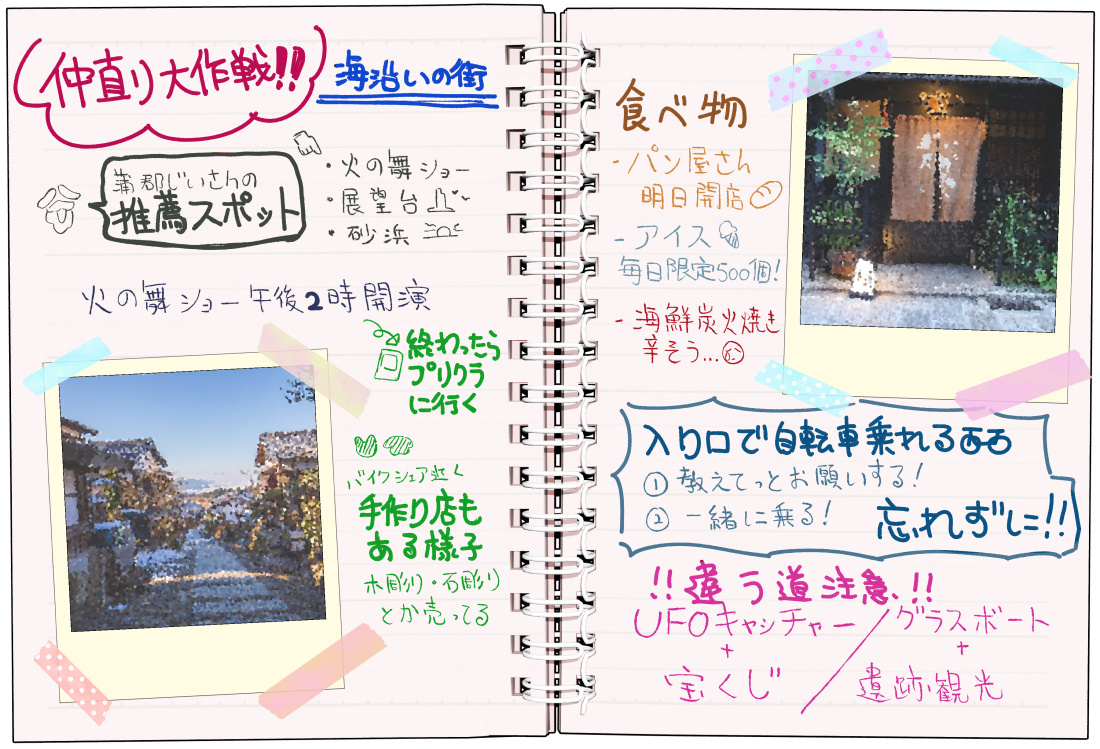 仲直り大作戦!!
海沿いの街
蒲郡じいさんの
推薦スポット
・火の舞ショー
・展望台
・砂浜
火の舞ショー午後2時開演
終わったら
プリクラ
に行く
バイクシェア近く
手作り店も
ある様子
木彫り・石彫り
とか売ってる
食べ物
-パン屋さん
明日開店
-アイス
毎日限定500個!
-海鮮炭火焼き
辛そう…
入り口で自転車乗れる
① 教えてっとお願いする!
② 一緒に乗る!
忘れずに!!
!!違う道注意!!
UFOキャッチャー
+
宝くじ
グラスボート
+
遺跡観光